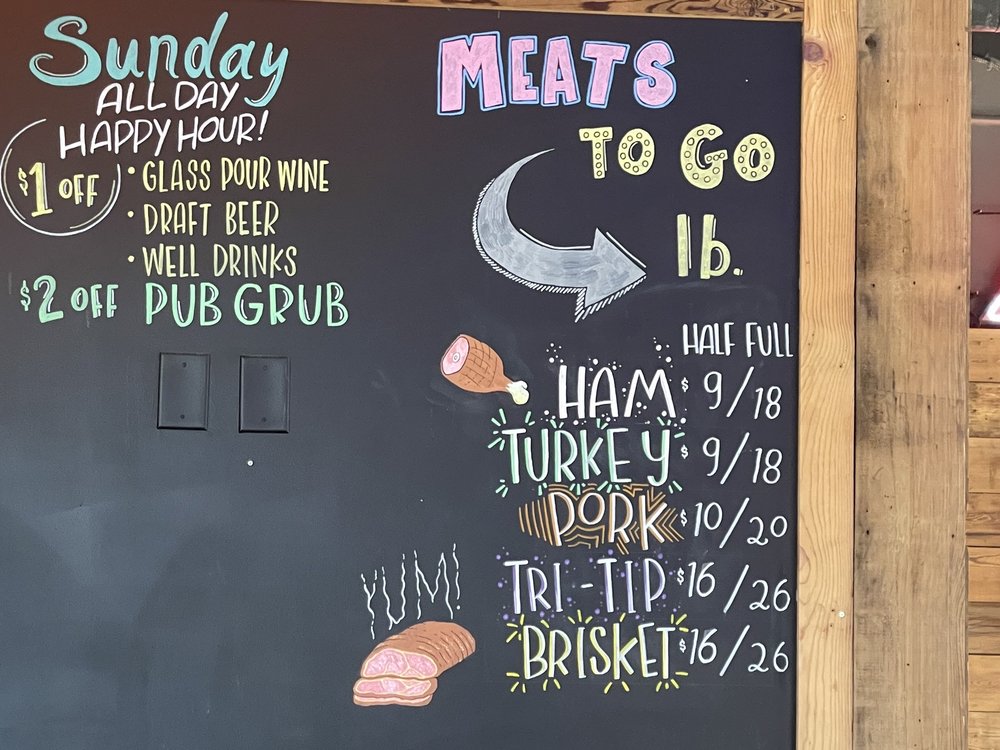 Sunday
ALL DAY
HAPPY HOUR!
$1 OFF
• GLASS POUR WINE
• DRAFT BEER
• WELL DRINKS
$2 OFF PUB GRUB
MEATS
TO GO
lb.
HALF FULL
HAM $9/18
TURKEY $9/18
PORK $10/20
TRI-TIP $16/26
BRISKET $16/26
YUM!